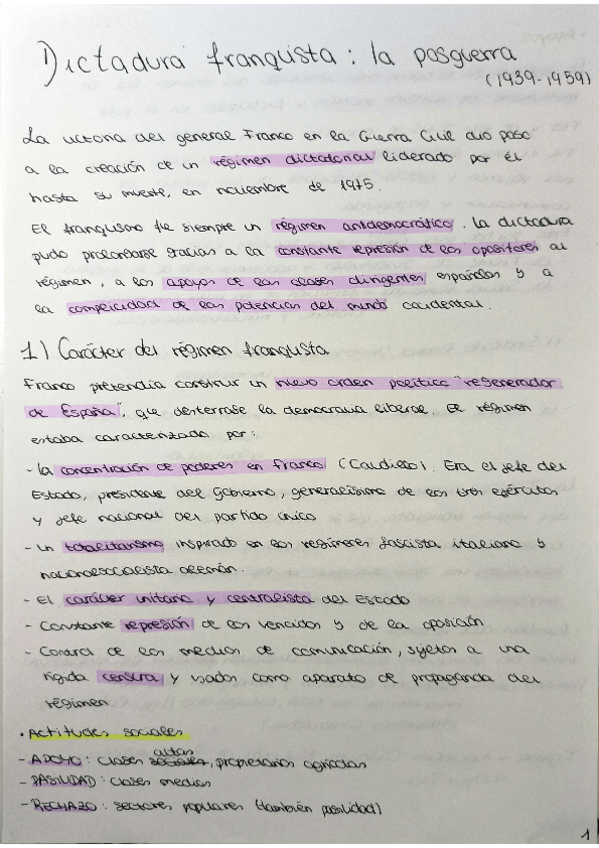 Dictadura franquista: la posguerra
(1939-1959)
La victoria del general Franco en la Guerra Civil dio paso
a la creación de un régimen dictatorial liderado por él
hasta su muerte, en noviembre de 1975.
El franquismo fue siempre un régimen antidemocrático. La dictadura
pudo prolongarse gracias a la constante represión de los opositores al
régimen, a los apoyos de las clases dirigentes españolas y a
la complicidad de las potencias del mundo occidental.
1) Carácter del régimen franquista
Franco pretendía construir un nuevo orden político "regenerador
de España", que desterrase la democracia liberal. El régimen
estaba caracterizado por:
- La concentración de poderes en Franco (Caudillo). Era el jefe del
Estado, presidente del gobierno, generalísimo de los tres ejércitos
y jefe nacional del partido único
- Un totalitarismo inspirado en los regímenes fascista italiano y
nacionalsocialista alemán.
- El carácter unitario y centralista del Estado
- Constante represión de los vencidos y de la oposición
- Control de los medios de comunicación, sujetos a una
rígida censura y usados como aparato de propaganda del
régimen.
• Actitudes sociales
- APOYO: clases altas, propietarios agrícolas
- PASILIDAD: clases medias
- RECHAZO: sectores populares (también pasilidad)
1